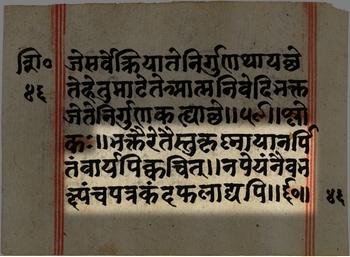 त्रि०
४६
जेसर्वेक्रियातेनिर्गुणथायछे
तेहेतुमाटेतेआत्मनिवेदिभक्त
जेतेनिर्गुणकह्याछे॥५९॥श्लो
कः॥भक्तैरेतैस्तुकृष्णायानर्पि
तंवार्यपिक्वचित्॥नपेयंनैवभ
क्ष्यंचपत्रकंदफलाद्यपि॥६०॥
४६